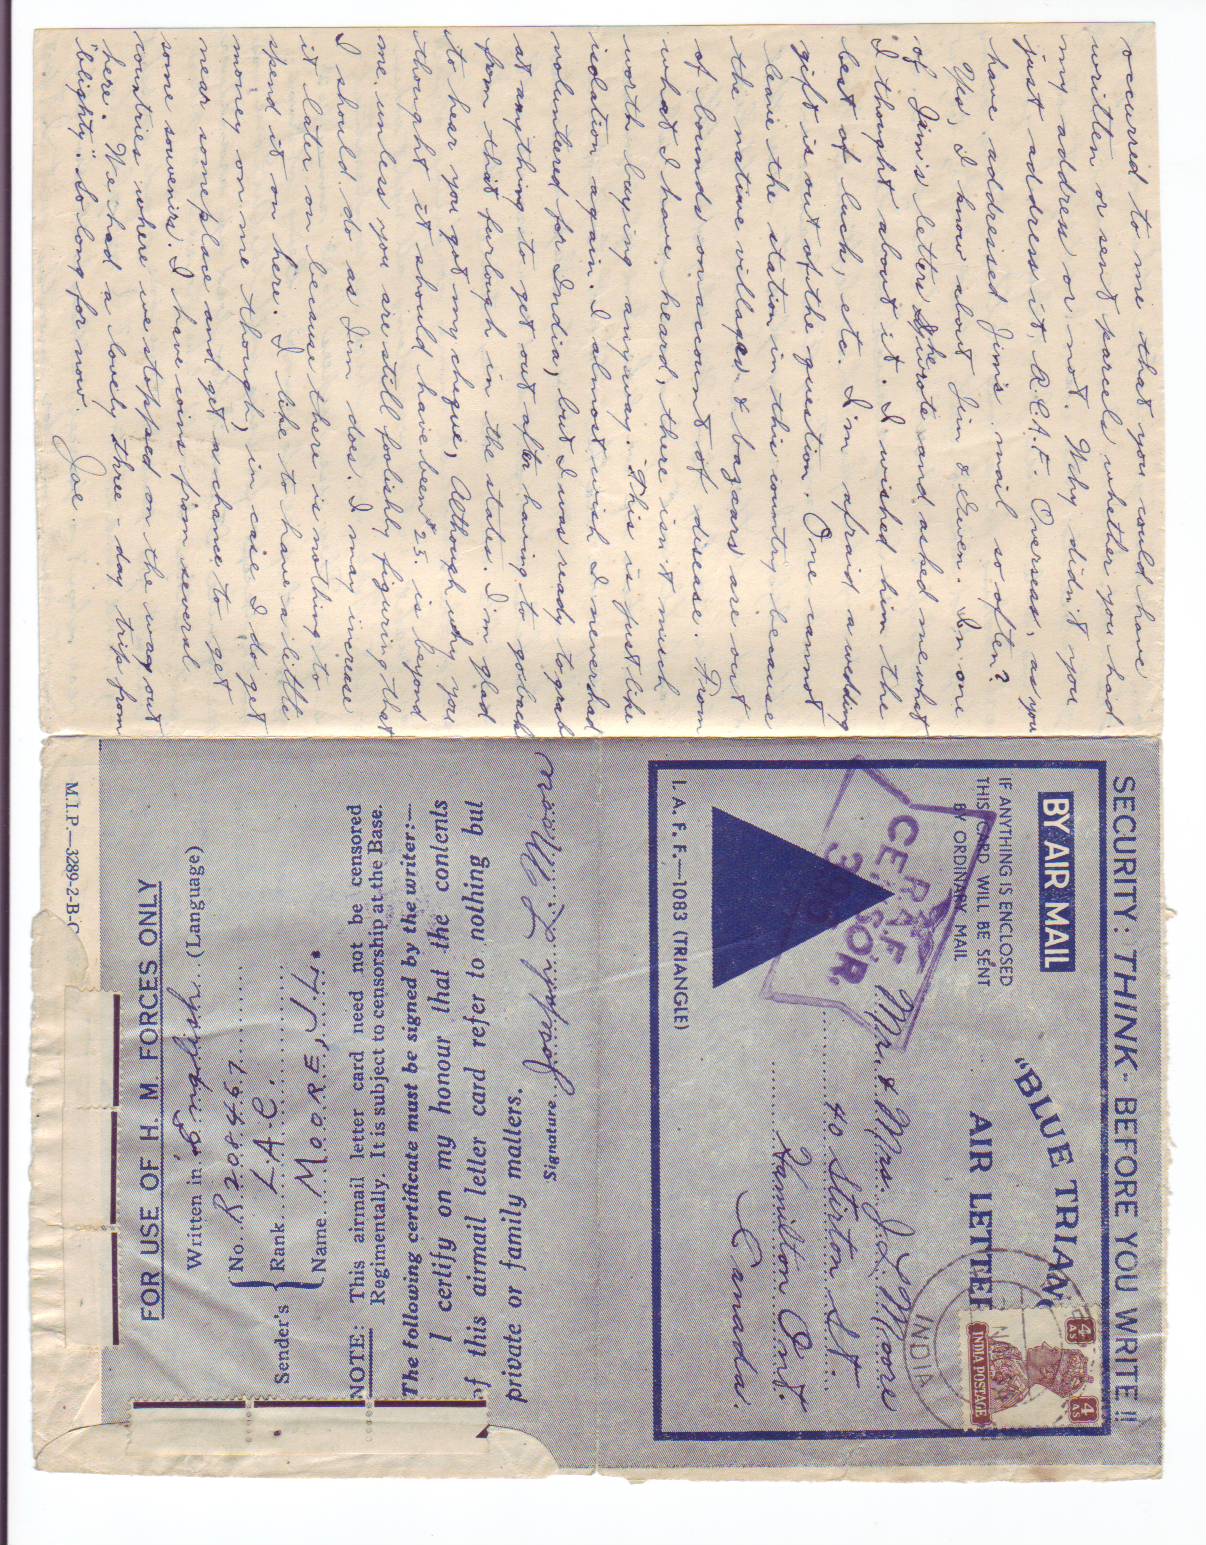 occurred to me that you could have
written or sent parcels whether you had
my address or not. Why didn't you
just address it, R.C.A.F. Overseas, as you
have addressed Jim's mail so often?
Yes, I know about Jim & Gwen. In one
of Jim's letters he wrote and asked me what
I thought about it. I wished him the
best of luck, etc. I'm afraid a wedding
gift is out of the question. One cannot
leave the station in this country because
the native villages & bazaars are out
of bounds on account of disease. From
what I have heard, there isn't much
worth buying anyway. This is just like
isolation again. I almost wish I never had
voluntered for India, but I was ready to grab
at anything to get out after having to go back
from that furlough in the states. I'm glad
to hear you got my cheque, although why you
thought it should have been $25. is beyond
me unless you are still folishly figuring that
I should do as Jim does. I may increase
it later on because there is nothing to
spend it on here. I like to have a little
money on me though, in case I do get
near someplace and get a chance to get
some souvenirs. I have coins from several
countries where we stopped on the way out
here. We had a lovely three-day trip from
"blighty". So long for now.
Joe.
SECURITY: THINK- BEFORE YOU WRITE !!
BY AIR MAIL
IF ANYTHING IS ENCLOSED
THIS CARD WILL BE SENT
BY ORDINARY MAIL
"BLUE TRIAN
AIR LETTER
4 AS
4 AS
INDIA POSTAGE
INDIA
CENSOR
R.A.F
Mr. & Mrs. J.L. Moore
40 Stirton St
Hamilton Ont.
Canada.
I. A. F. F.—1083 (TRIANGLE)
M.I.P.—3289-2-B-
FOR USE OF H. M. FORCES ONLY
Written in English (Language)
Sender's
No. R208467
Rank L.A.C.
Name MOORE, J.L.
NOTE: This airmail letter card need not be censored
Regimentally. It is subject to censorship at the Base.
The following certificate must be signed by the writer:—
I certify on my honour that the contents
of this airmail letter card refer to nothing but
private or family matters.
Signature Joseph L. Moore